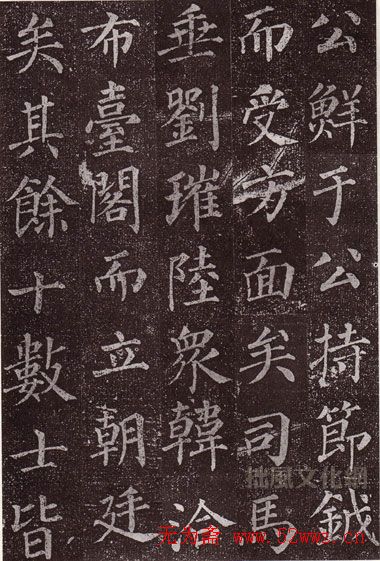 公鮮于公持節鉞
而受方面矣司馬
垂劉璀陸衆韓洽
布臺閣而立朝廷
矣其餘十數士皆
拙風文化網
无为斋 www.52wws.cn